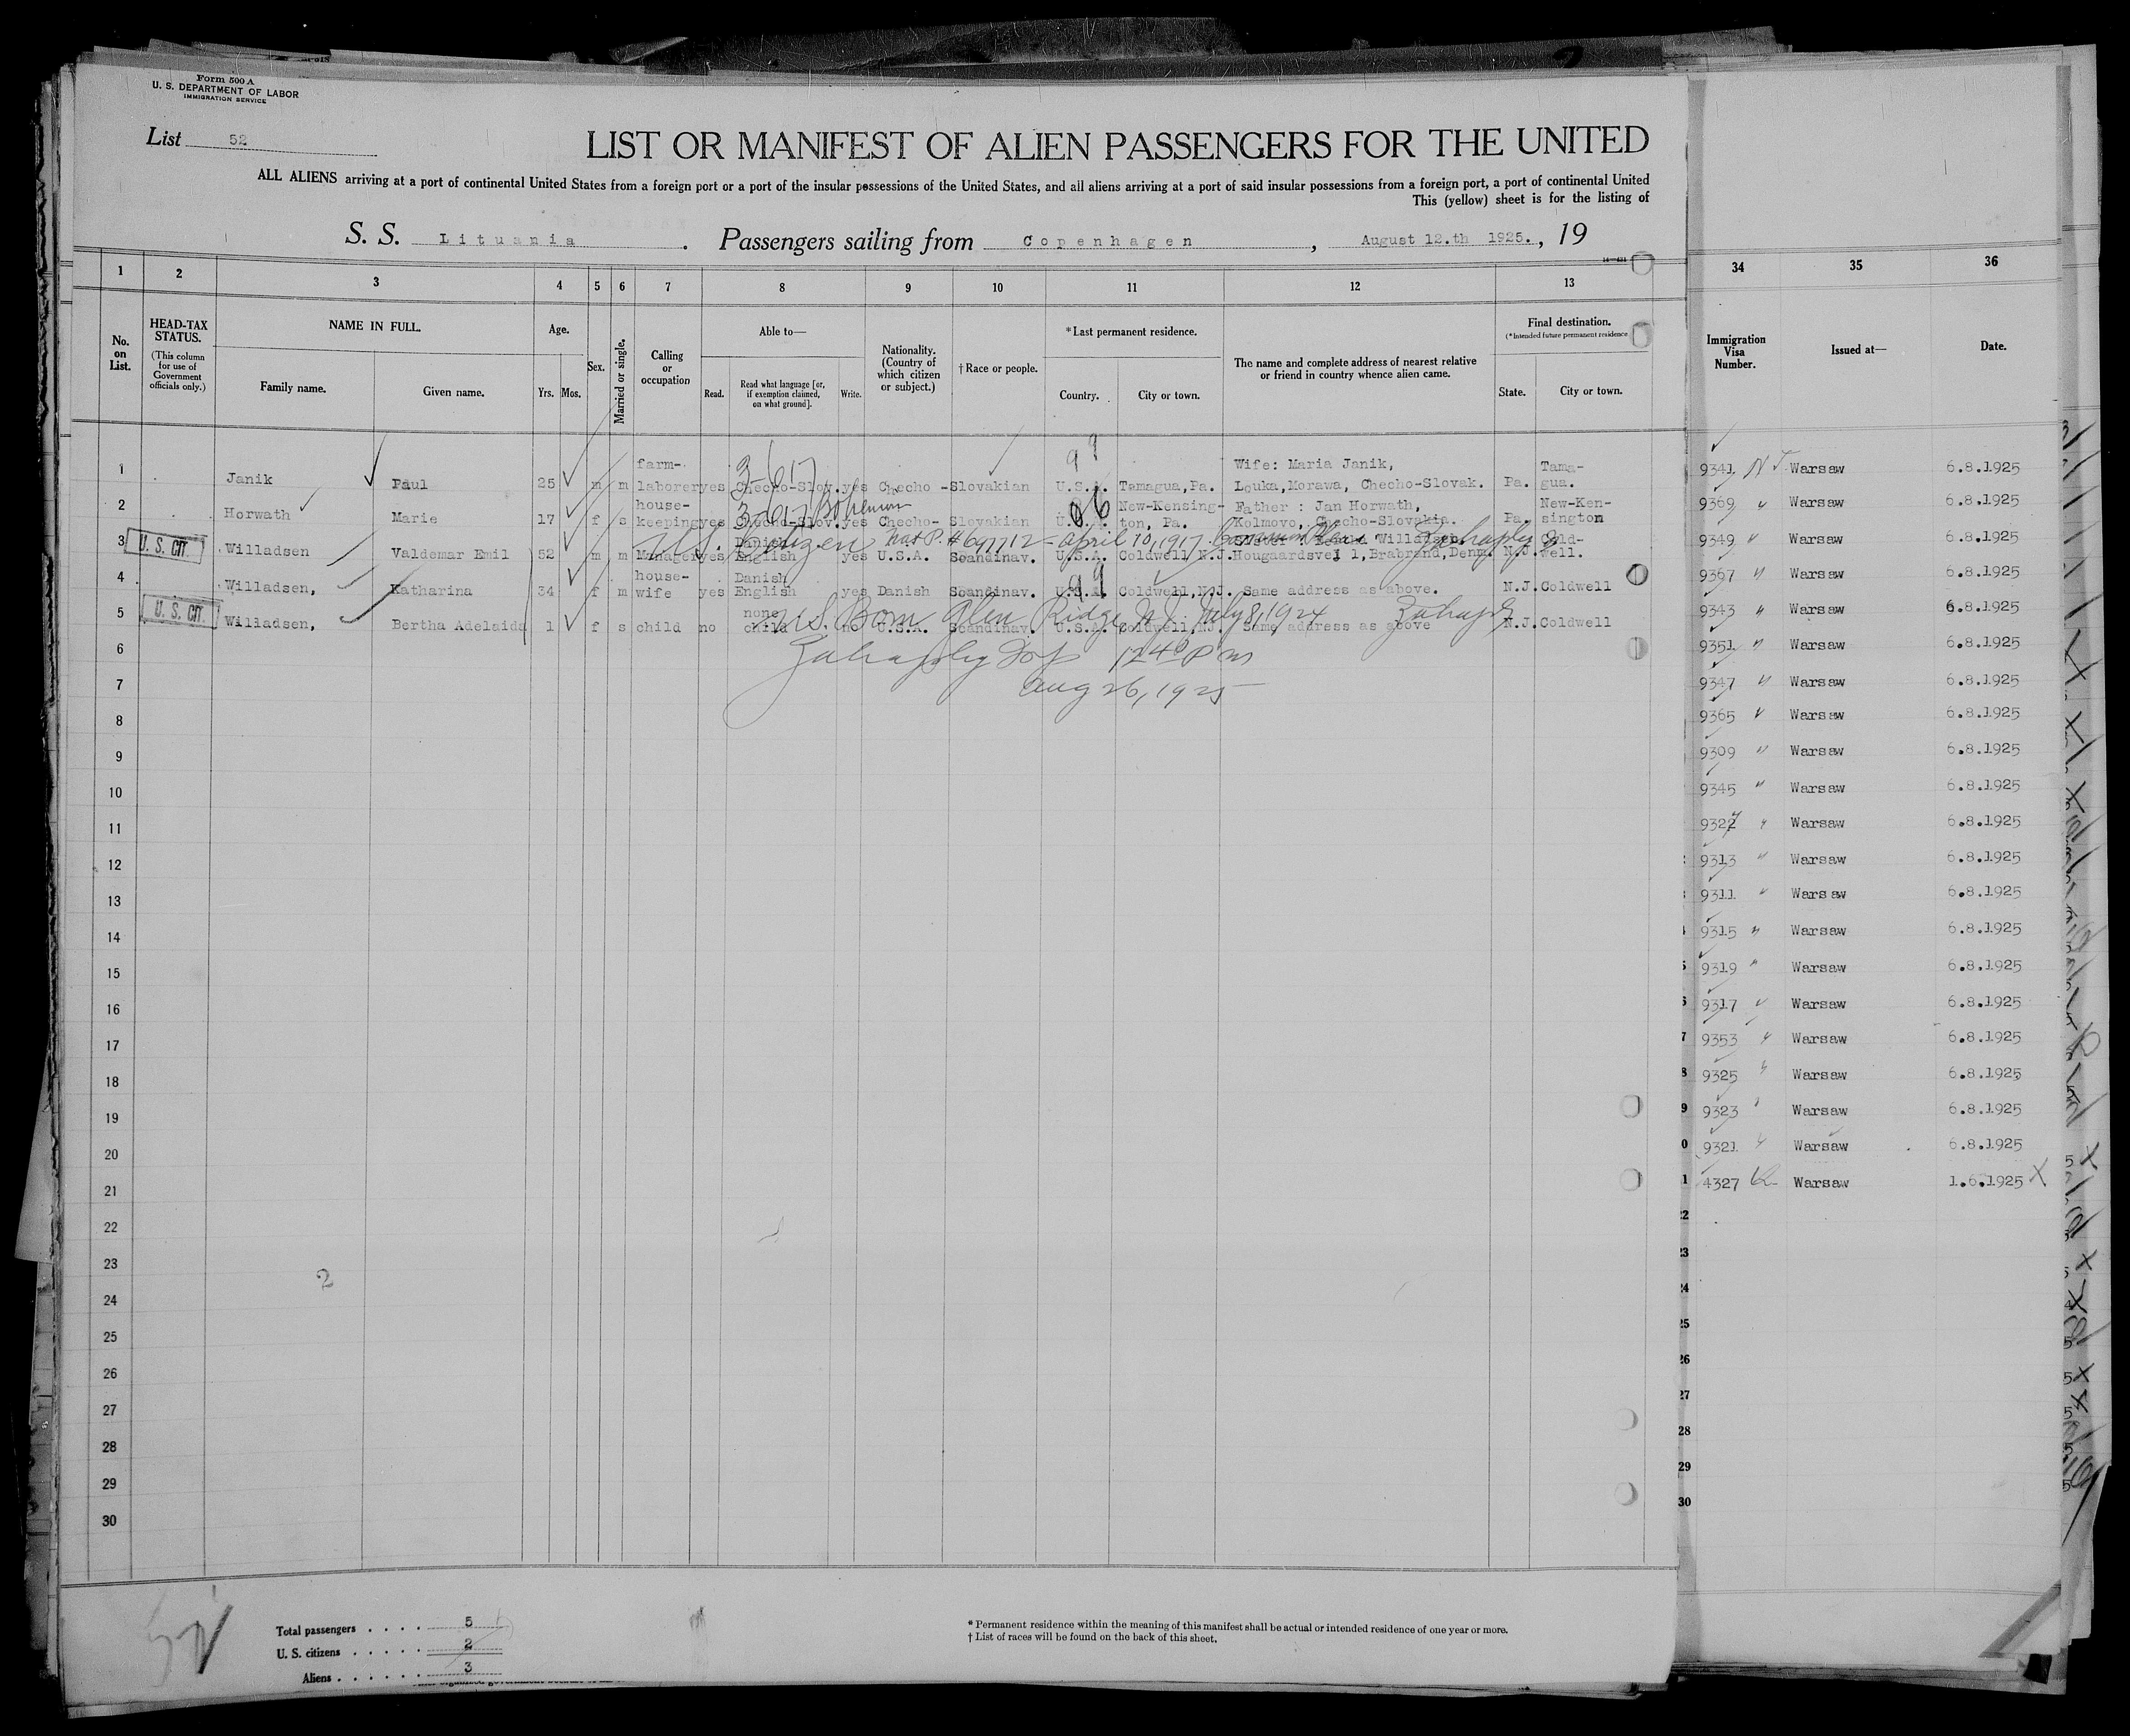 Form 500 A
U. S. DEPARTMENT OF LABOR
IMMIGRATION SERVICE
List 52
LIST OR MANIFEST OF ALIEN PASSENGERS FOR THE UNITED
ALL ALIENS arriving at a port of continental United States from a foreign port or a port of the insular possessions of the United States, and all aliens arriving at a port of said insular possessions from a foreign port, a port of continental United
This (yellow) sheet is for the listing of
S. S. Lituania. Passengers sailing from Copenhagen, August 12.th 1925., 19
1 2 3 4 5 6 7 8 9 10 11 12 13 34 35 36
No. on List.
HEAD-TAX STATUS.
(This column for use of Government officials only.)
NAME IN FULL.
Family name. Given name.
Age.
Yrs. Mos.
Sex.
Married or single.
Calling or occupation
Able to—
Read. Read what language [or, if exemption claimed, on what ground]. Write.
Nationality. (Country of which citizen or subject.)
† Race or people.
*Last permanent residence.
Country. City or town.
The name and complete address of nearest relative or friend in country whence alien came.
Final destination.
(*Intended future permanent residence
State. City or town.
Immigration Visa Number.
Issued at—
Date.
1 Janik Paul 25 m m farm-laborer yes Checho-Slov. yes Checho-Slovakian U.S.A. Tamagua, Pa. Wife: Maria Janik, Louka, Morawa, Checho-Slovak. Pa. Tama-gua.
3-617
99
2 Horwath Marie 17 f s house-keeping yes Checho-Slov. yes Checho-Slovakian U.S.A. New-Kensing-ton, Pa. Father : Jan Horwath, Kolmovo, Checho-Slovakia. Pa. New-Ken-sington
3-617 Bohemian
06
U.S. Citizen Nat P. # 697712 - April 10, 1917
3 U. S. CIT. Willadsen Valdemar Emil 52 m m Manager yes Danish English yes U.S.A. Scandinav. U.S.A. Coldwell, N.J. Hougaardsvej 1, Brabrand, Denm. N.J. Cold-well.
4 Willadsen, Katharina 34 f m house-wife yes Danish English yes Danish Scandinav. U.S.A. Coldwell, N.J. Same address as above. N.J. Coldwell
99
U.S. Born Glen Ridge N.J. July 8, 1924
5 U. S. CIT. Willadsen, Bertha Adelaida 1 f s child no none child no U.S.A. Scandinav. U.S.A. Coldwell, N.J. Same address as above N.J. Coldwell
12 40 P m
Aug 26, 1925
6
7
8
9
10
11
12
13
14
15
16
17
18
19
20
21
22
23
24
25
26
27
28
29
30
2
9341 Warsaw 6.8.1925
9369 " Warsaw 6.8.1925
9349 " Warsaw 6.8.1925
9367 " Warsaw 6.8.1925
9343 " Warsaw 6.8.1925
9351 " Warsaw 6.8.1925
9347 " Warsaw 6.8.1925
9365 " Warsaw 6.8.1925
9309 " Warsaw 6.8.1925
9345 " Warsaw 6.8.1925
9327 " Warsaw 6.8.1925
9313 " Warsaw 6.8.1925
9311 " Warsaw 6.8.1925
9315 " Warsaw 6.8.1925
9319 " Warsaw 6.8.1925
9317 " Warsaw 6.8.1925
9353 " Warsaw 6.8.1925
9325 " Warsaw 6.8.1925
9323 " Warsaw 6.8.1925
9321 " Warsaw 6.8.1925
4327 Warsaw 1.6.1925 X
22
23
24
25
26
27
28
29
30
Total passengers . . . . 5
U. S. citizens . . . . . 2
Aliens . . . . . . 3
* Permanent residence within the meaning of this manifest shall be actual or intended residence of one year or more.
† List of races will be found on the back of this sheet.